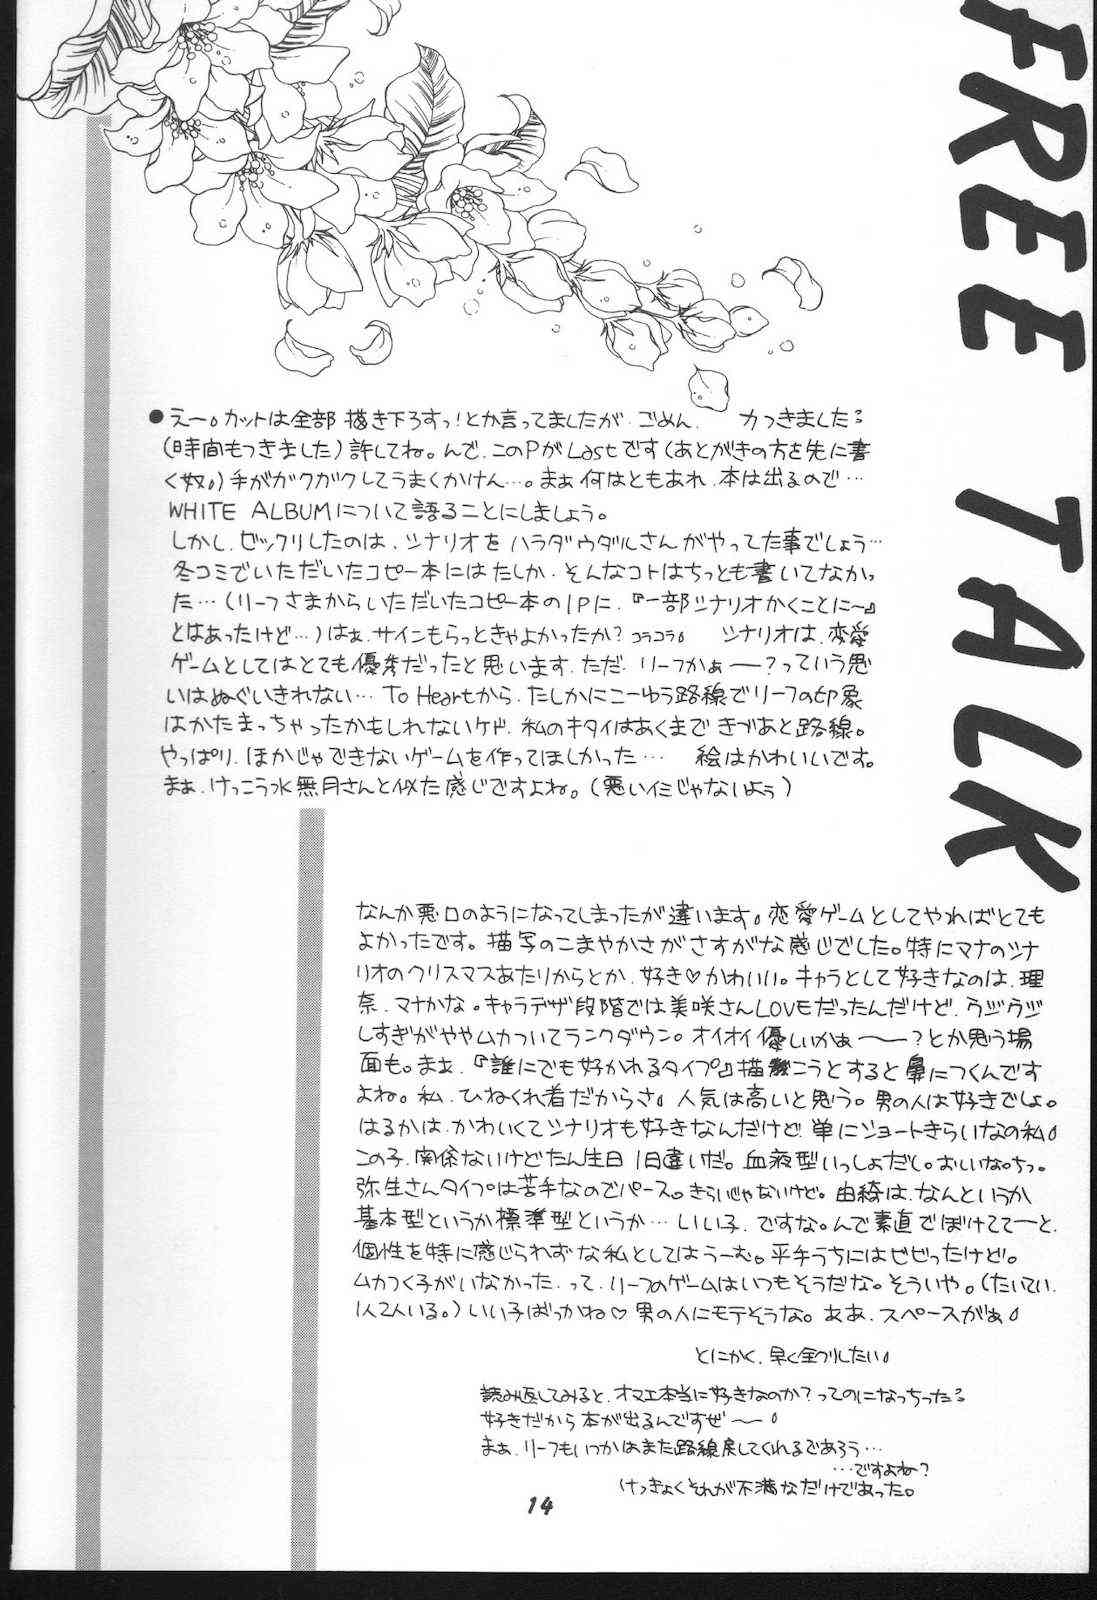 FREE TALK
●えー。カットは全部 描き下ろすっ！とか言ってましたが、ごめん、 力つきました
(時間もつきました) 許してね。んで、このPがLastです(あとがきの方を先に書
く奴。)手がガクガクしてうまくかけん…。まぁ何はともあれ、本は出るので…
WHITE ALBUMについて語ることにしましょう。
しかし、ビックリしたのは、シナリオを ハラダウダルさんがやってた事でしょう…
冬コミでいただいたコピー本にはたしか、そんなコトはちっとも書いてなかっ
た…(リーフさまからいただいたコピー本の1Pに、『一部シナリオかくことに〜』
とはあったけど…)はぁ、サインもらっときゃよかったか？コラコラ。 シナリオは、恋愛
ゲームとしてはとても優秀だったと思います、ただ、リーフかぁ〜？っていう思
いはぬぐいきれない… To Heartから、たしかにこーゆう路線でリーフの印象
はかたまっちゃったかもしれないケド、私のキタイはあくまで きづあと路線。
やっぱり、ほかじゃできないゲームを作ってほしかった… 絵はかわいいです。
まぁ、けっこう水無月さんと似た感じですよね。(悪いイミじゃないよぅ)
なんか悪口のようになってしまったが違います。恋愛ゲームとしてやればとても
よかったです。描写のこまやかさがさすがな感じでした。特にマナのシナ
リオのクリスマスあたりからとか、好き♡かわいい。キャラとして好きなのは、理
奈、マナかな。キャラデザ段階では美咲さんLOVEだったんだけど、ウジウジ
しすぎがややムカついてランクダウン。オイオイ優しいかぁ〜？とか思う場
面も。まぁ、『誰にでも好かれるタイプ』描こうとすると鼻につくんです
よね。私、ひねくれ者だからさ。人気は高いと思う。男の人は好きでしょ。
はるかは、かわいくてシナリオも好きなんだけど、単にショートきらいなの私。
この子、関係ないけどたん生日 1日違いだ。血液型いっしょだし。おしいなっ。
弥生さんタイプは苦手なのでパース。きらいじゃないけど。由綺は、なんというか
基本型というか標準型というか… いい子、ですな。んで素直でぼけててーと、
個性を特に感じられずな私としてはうーむ。平手うちにはビビったけど。
ムカつく子がいなかった、って、リーフのゲームはいつもそうだな。そういや。(たいてい、
1人2人いる。)いい子ばっかね♡ 男の人にモテそうな。ああ、スペースがぁ
とにかく、早く全クリしたい。
読み返してみると、オマエ本当に好きなのか？ってのになっちった
好きだから本が出るんですぜ〜
まぁ、リーフもいつかはまた路線戻してくれるであろう…
…ですよね？
けっきょくそれが不満なだけであった。
14